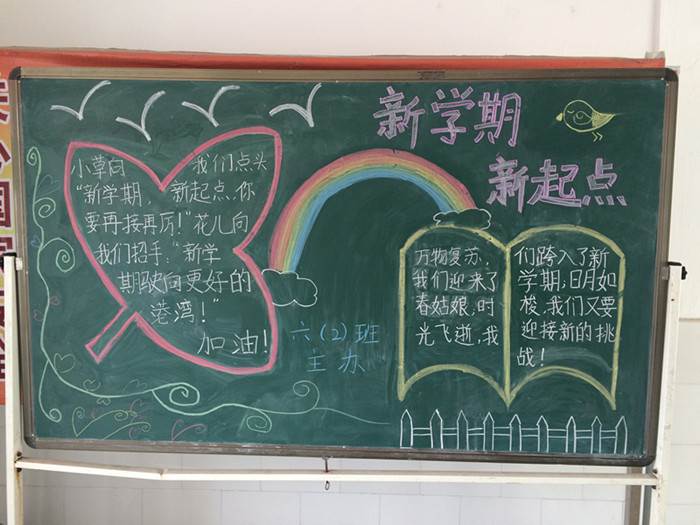 新学期
新起点
小草向 我们点头
“新学期，新起点，你
要再接再厉！”花儿向
我们招手：“新学
期驶向更好的
港湾！”
加油！
六（2）班
主办
万物复苏，
我们迎来了
春姑娘，时
光飞逝，我
们跨入了新
学期，日月如
梭，我们又要
迎接新的挑
战！